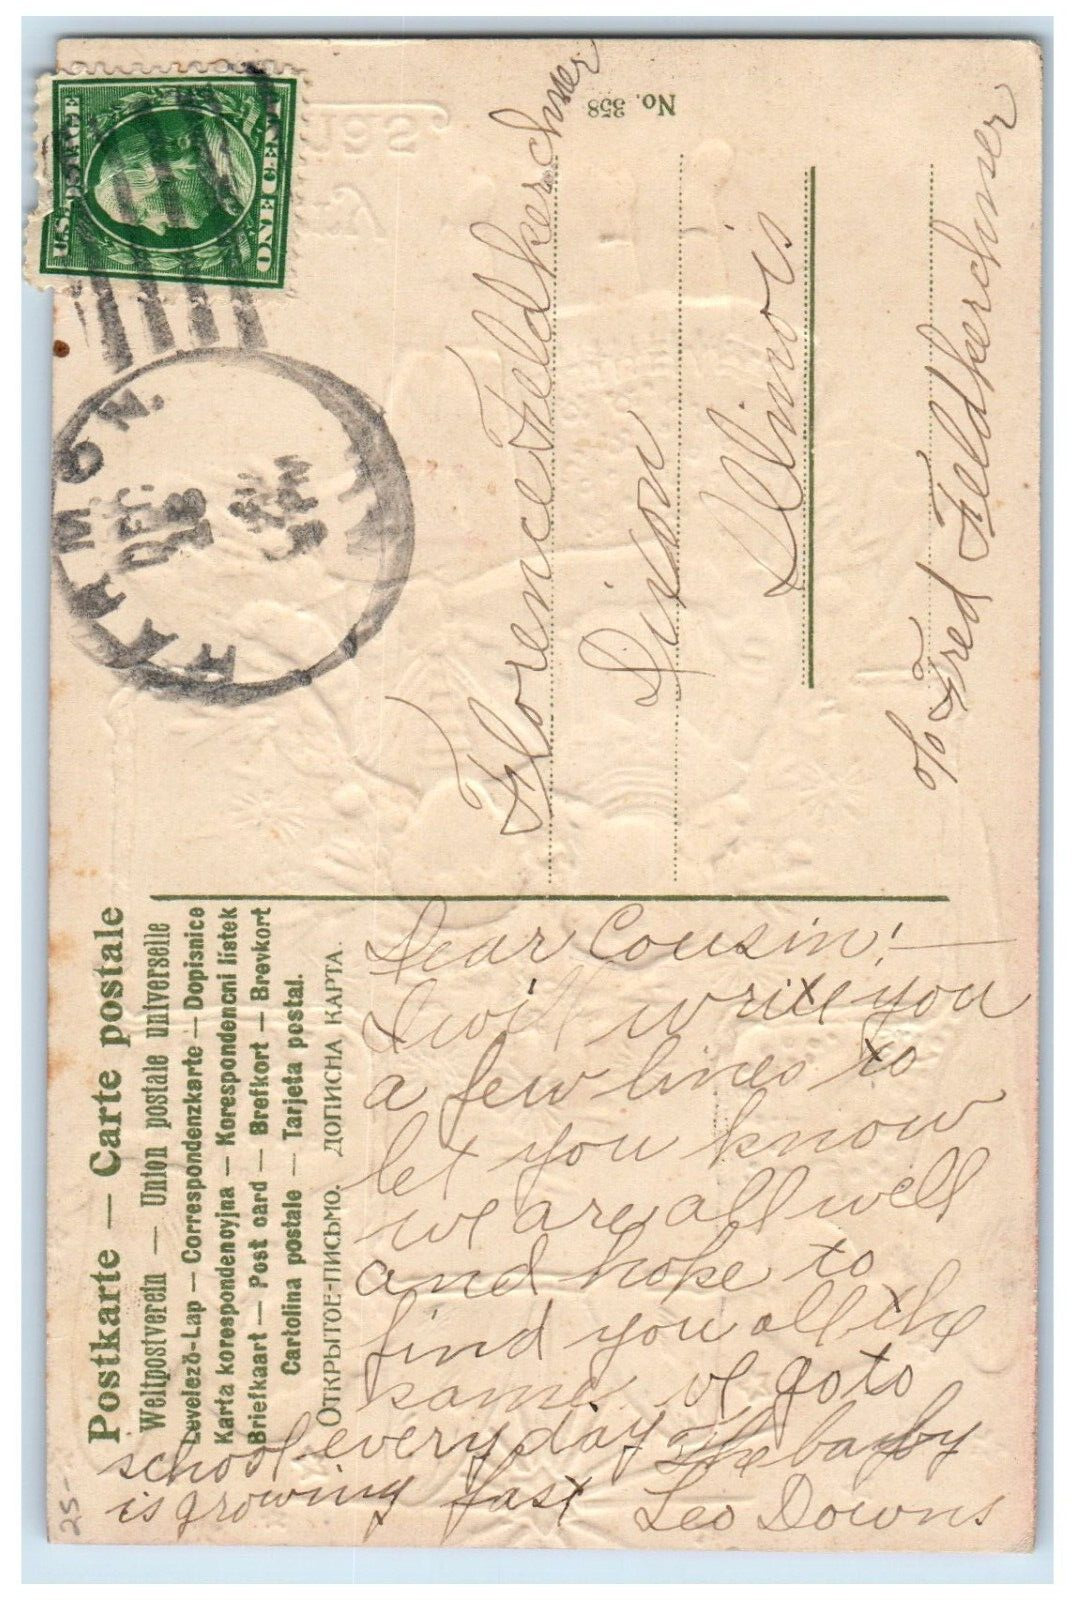 Postkarte — Carte postale
Weltpostverein — Union postale universelle
Levelező-Lap — Correspondenzkarte — Dopisnice
Karta korespondencyjna — Korespondencni listek
Briefkaart — Post card — Brefkort — Brevkort
Cartolina postale — Tarjeta postal.
ОТКРЫТОЕ-ПИСЬМО. ДОПИСНА КАРТА.
Dear Cousin! —
I will write you
a few lines to
let you know
we are all well
and hope to
find you all the
same we go to
school every day The bayby
is growing fast Leo Downs
25-
U.S. POSTAGE
ONE CENT
DEC
23
PM
No. 358
Florence Feldkerchner
Dixon
Illinois
c/o Fred Feldkerchner